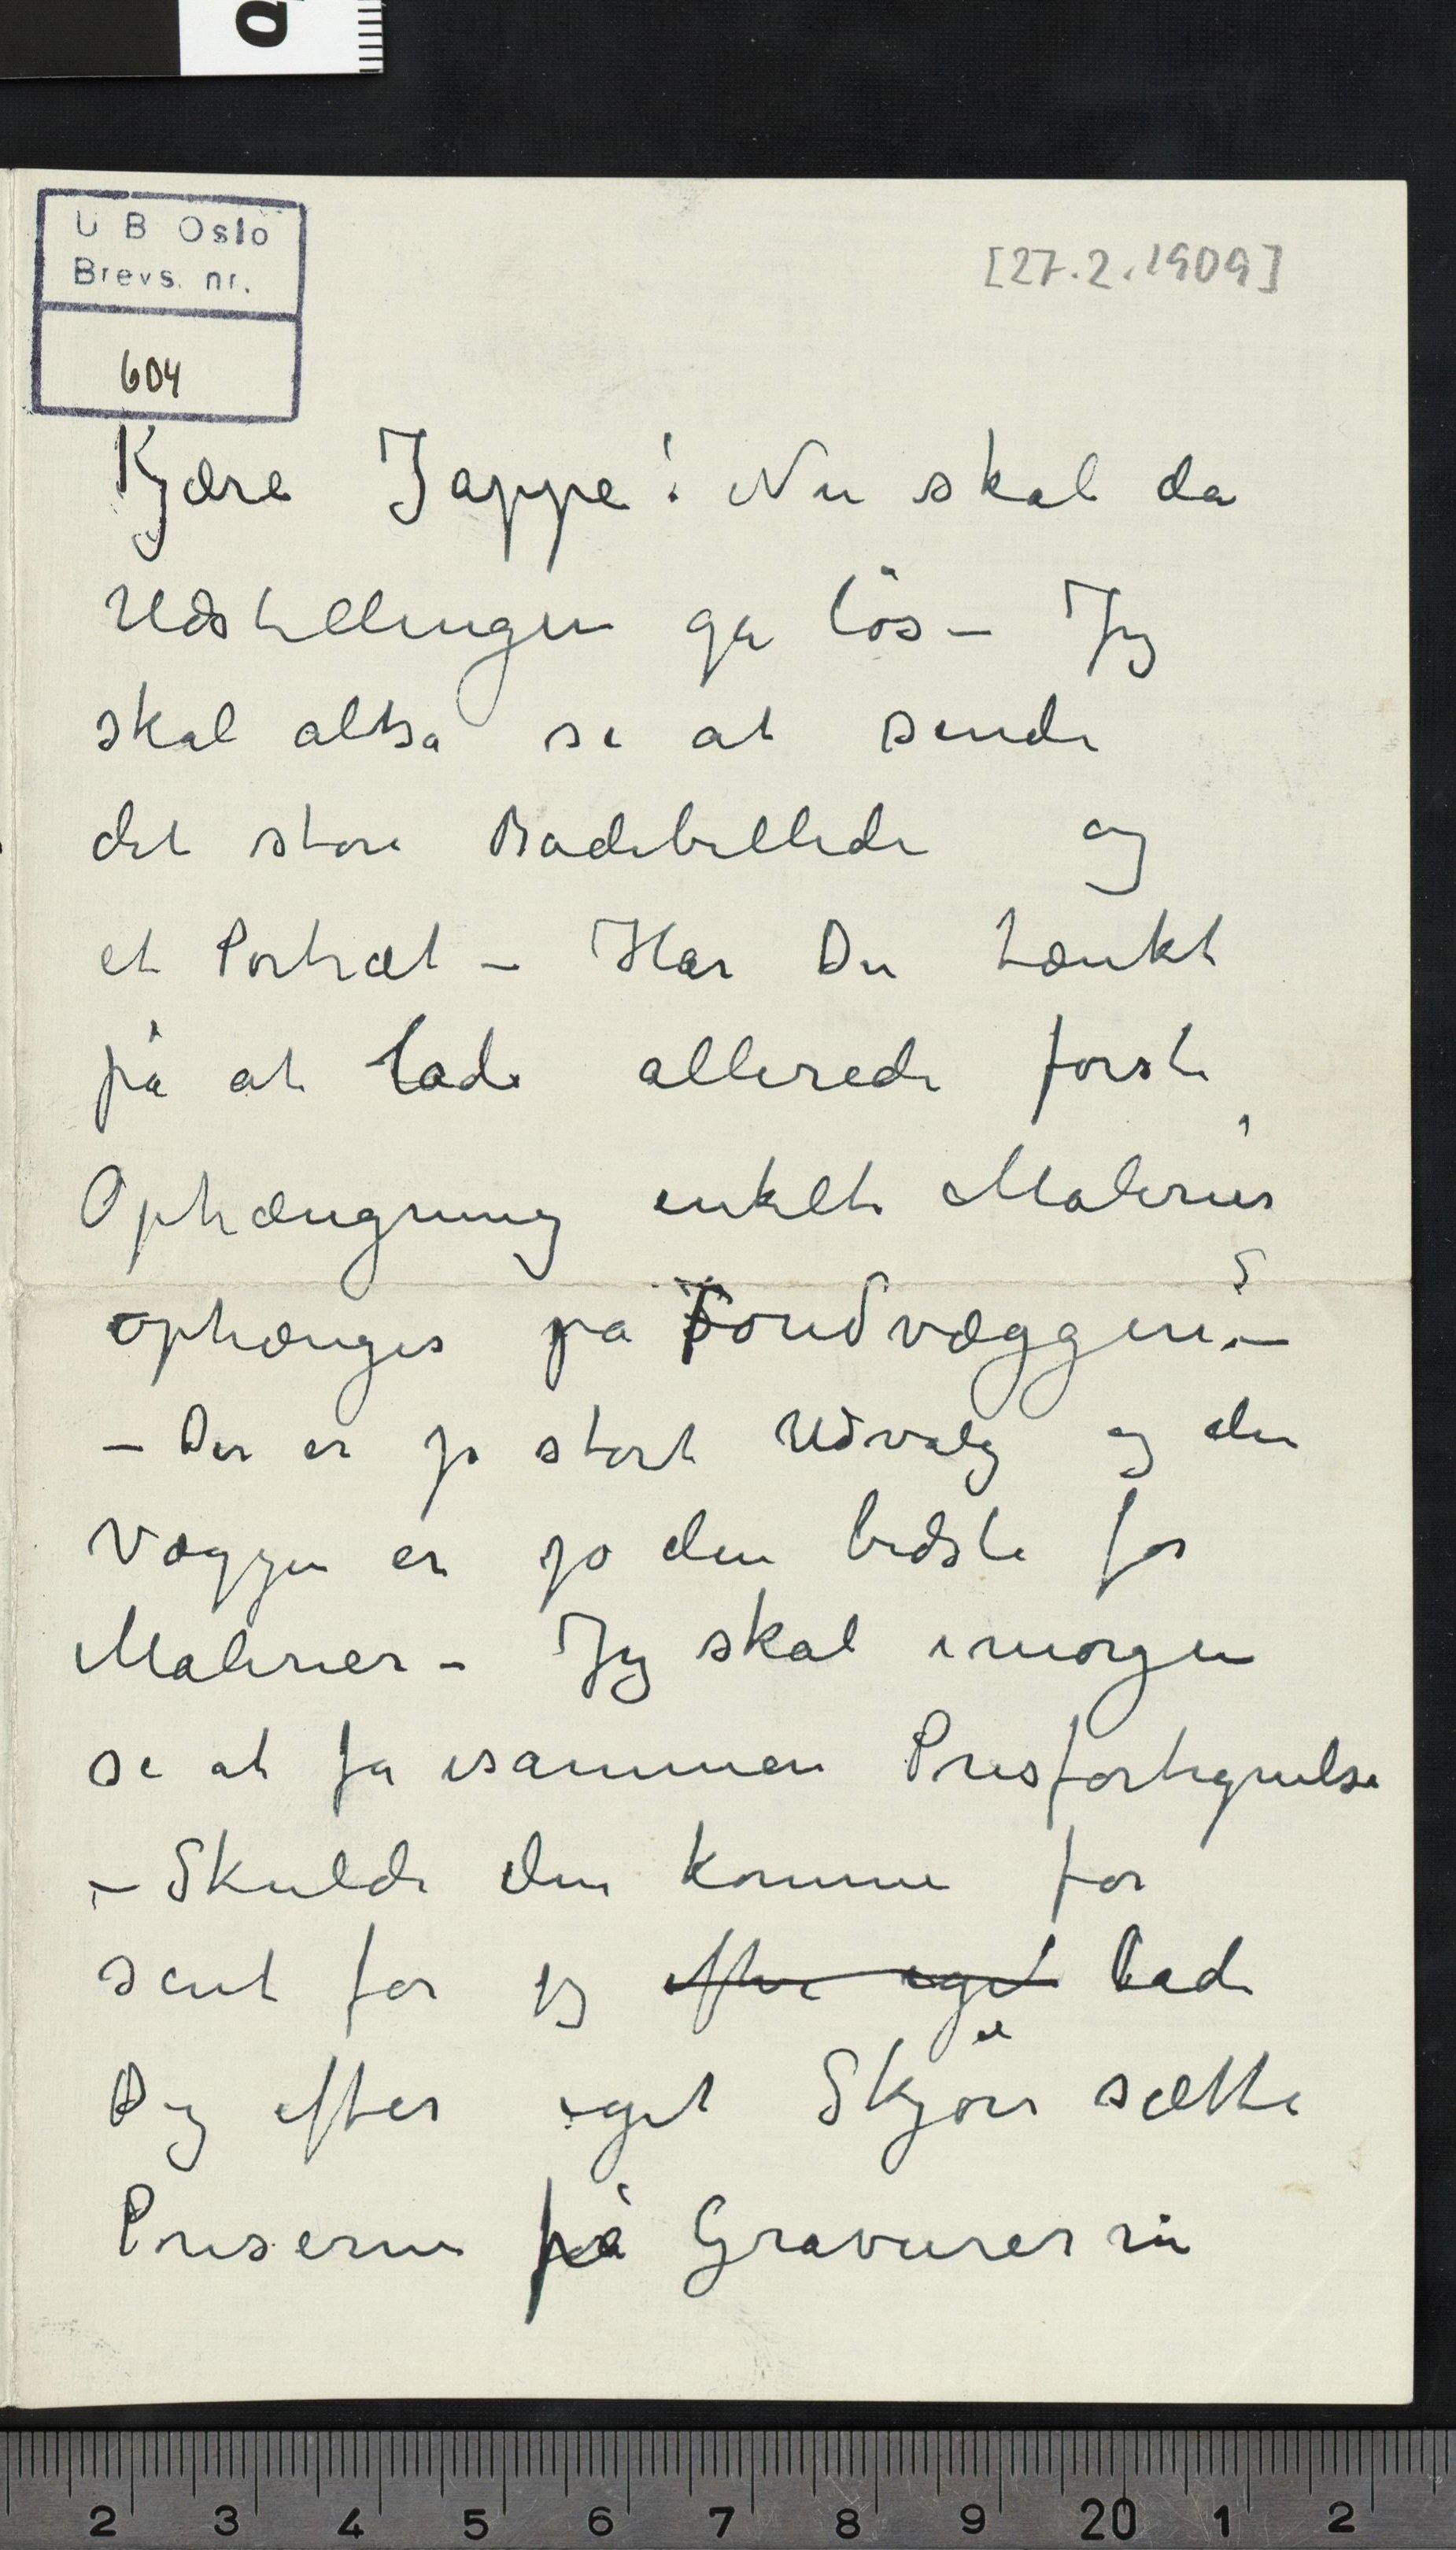 U B Oslo
Brevs. nr.
604
[27.2.1909]
Kjære Jappe! Nu skal da
Udstillingen ga lös – Jeg
skal altsa se at sende
det store Badebillede og
et Portræt – Har Du tænkt
på at lade allerede forste
Ophængning enkelte Malerier
ophænges pa Fondvæggen? –
– Der er jo stort Udvalg og den
Væggen er jo den bedste for
Malerier – Jeg skal imorgen
se at fa isammen Prisfortegnelse
– Skulde den komme for
sent far jeg efter eget lade
Dig efter eget Skjön sætte
Priserne på Gravurerne